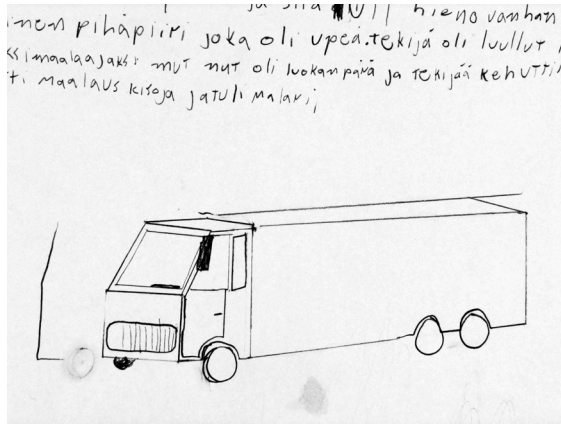 ja siitä tuli hieno vanhan
inen pihapiiri joka oli upeä.tekijä oli luullut
ksimaalaajaksi mut nyt oli luokanpärä ja tekijää kehuttii
ti maalaus kisoja ja tuli malari,